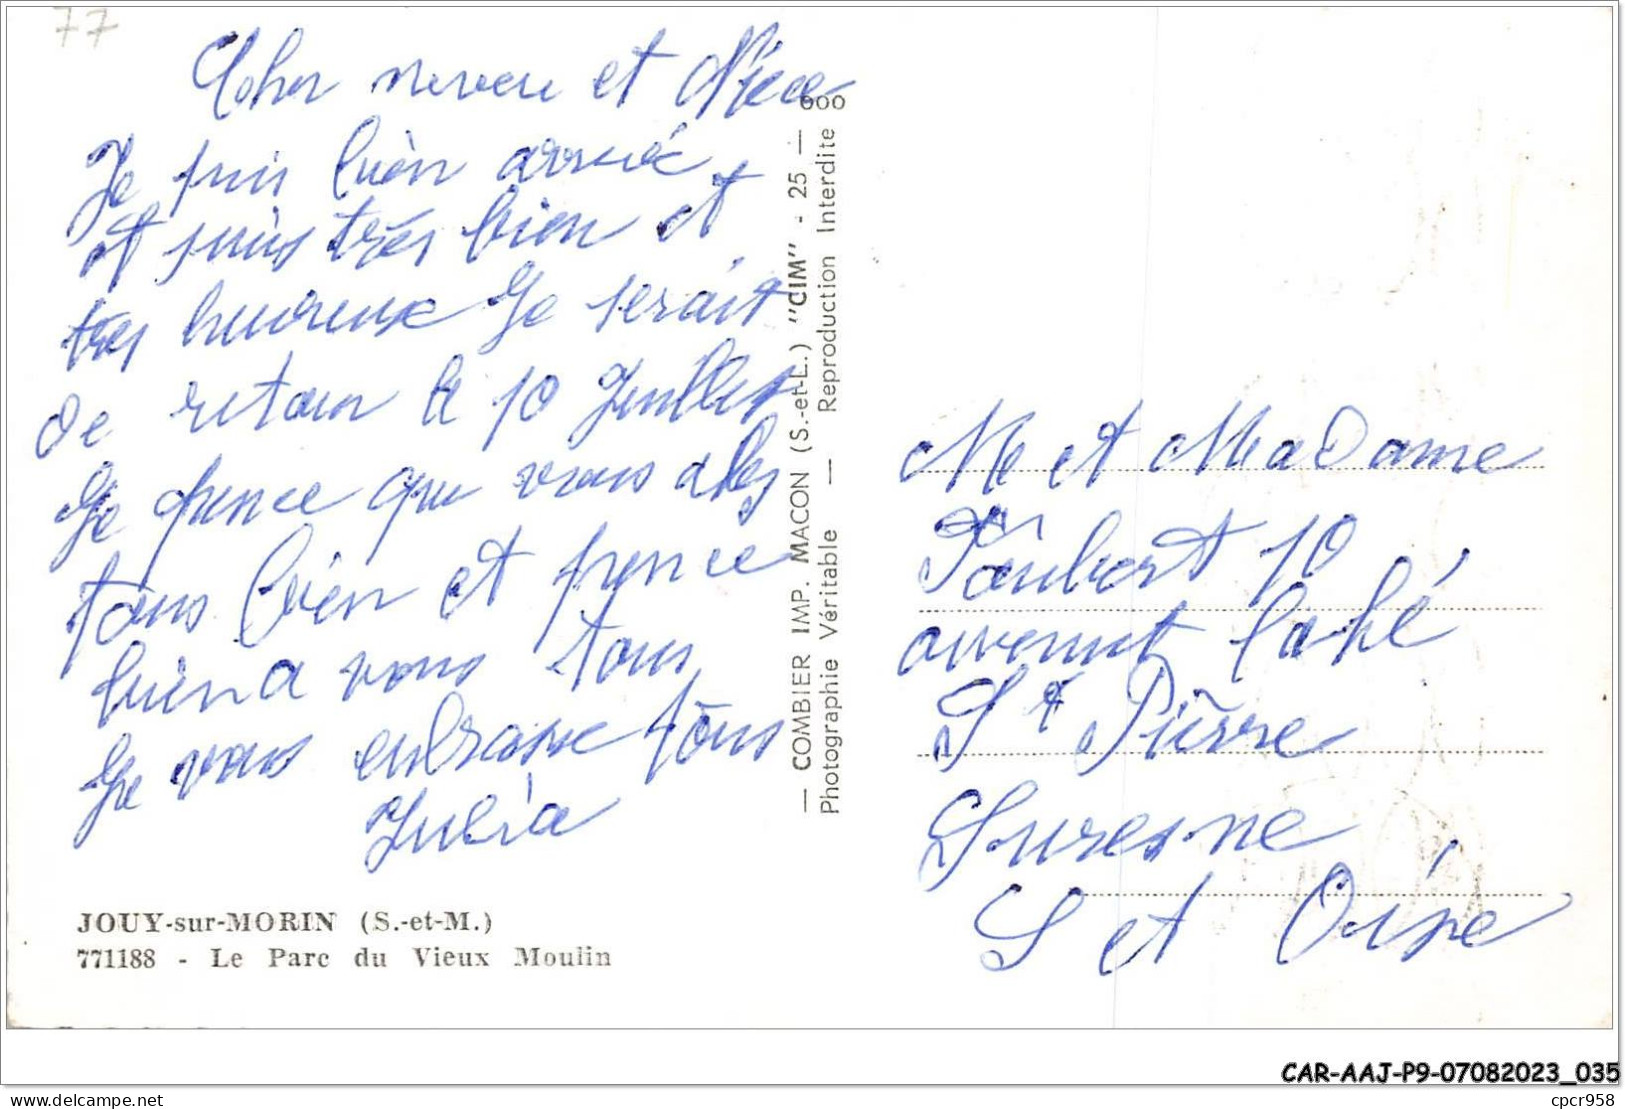 77
Cher neveu et Nièce
Je suis bièn arrivé
et suis très bien et
tres heureux Je serait
de retour le 10 Juillet
Je pence que vous allez
tous bien et pence
bièn a vous tous
Je vous enbrasse tous
Julia
JOUY-sur-MORIN (S.-et-M.)
771188 - Le Parc du Vieux Moulin
— COMBIER IMP. MACON (S.-et-L.) "CIM" - 25 — 600
Photographie Véritable — Reproduction Interdite
Mr et Madame
10
avenut
St Pierre
Suresne
S et Oise
CAR-AAJ-P9-07082023_035
delcampe.net
cpcr958